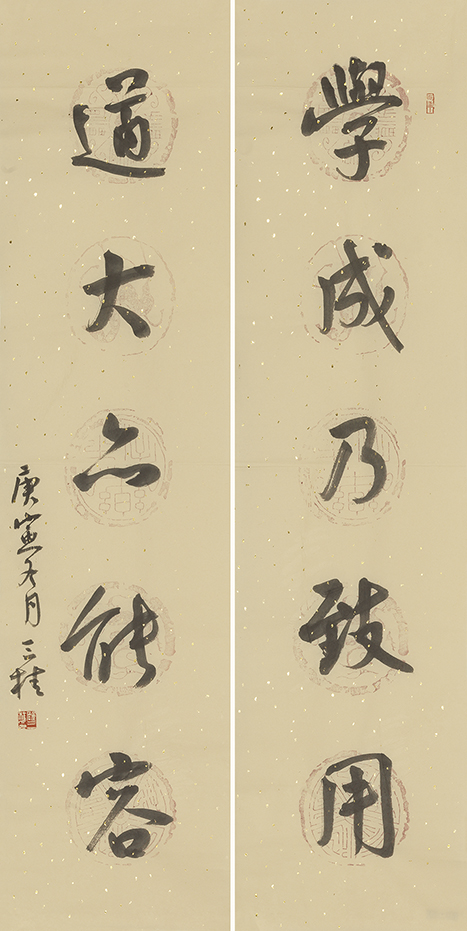 學成乃致用
道大亦能容
庚寅冬月 三桂